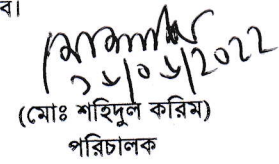 ব।
১৮/০৮/2022
(মোঃ শহিদুল করিম)
পরিচালক